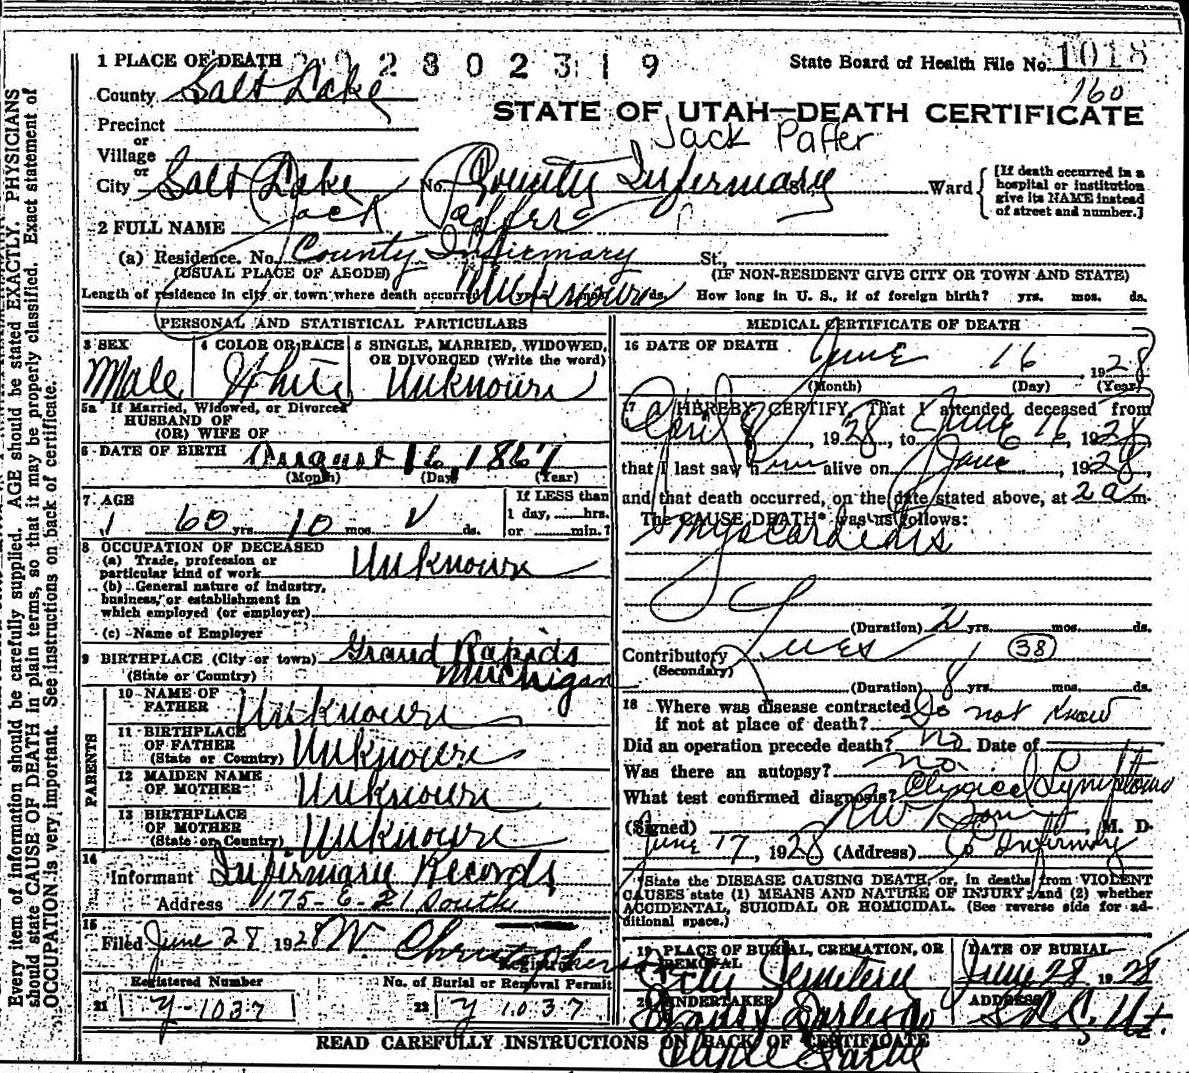 1 PLACE OF DEATH 2 3 0 2 3 1 9 State Board of Health File No. 1018
County Salt Lake 160
STATE OF UTAH—DEATH CERTIFICATE
Precinct Jack Paffer
or
Village
or
City Salt Lake No. County Infirmary St. Ward
[If death occurred in a hospital or institution give its NAME instead of street and number.]
2 FULL NAME Jack Paffer
(a) Residence. No. County Infirmary St.,
(USUAL PLACE OF ABODE) (IF NON-RESIDENT GIVE CITY OR TOWN AND STATE)
Length of residence in city or town where death occurred Unknown ds. How long in U. S., if of foreign birth? yrs. mos. ds.
PERSONAL AND STATISTICAL PARTICULARS
3 SEX 4 COLOR OR RACE 5 SINGLE, MARRIED, WIDOWED, OR DIVORCED (Write the word)
Male White Unknown
5a If Married, Widowed, or Divorced
HUSBAND OF
(OR) WIFE OF
6 DATE OF BIRTH August 16, 1867
(Month) (Day) (Year)
7 AGE If LESS than
1 day, hrs.
60 yrs. 10 mos. ds. or min.?
8 OCCUPATION OF DECEASED
(a) Trade, profession or
particular kind of work Unknown
(b) General nature of industry,
business, or establishment in
which employed (or employer)
(c) Name of Employer
9 BIRTHPLACE (City or town) Grand Rapids
(State or Country) Michigan
PARENTS
10 NAME OF
FATHER Unknown
11 BIRTHPLACE
OF FATHER
(State or Country) Unknown
12 MAIDEN NAME
OF MOTHER Unknown
13 BIRTHPLACE
OF MOTHER
(State or Country) Unknown
14
Informant Infirmary Records
Address 175- E 21 South
15
Filed June 28 1928
Registrar
Registered Number No. of Burial or Removal Permit
21 y-1037 22 y 1037
MEDICAL CERTIFICATE OF DEATH
16 DATE OF DEATH June 16, 1928
(Month) (Day) (Year)
17 I HEREBY CERTIFY, That I attended deceased from
April 8, 1928, to June 16, 1928
that I last saw him alive on June, 1928,
and that death occurred, on the date stated above, at 2 a m.
The CAUSE DEATH* was as follows:
Myocarditis
(Duration) 2 yrs. mos. ds.
Contributory Lues 38
(Secondary)
(Duration) 8 yrs. mos. ds.
18 Where was disease contracted
if not at place of death? Do not know
Did an operation precede death? no Date of
Was there an autopsy? no.
What test confirmed diagnosis? Clinical Symptoms
(Signed) M. D.
June 17, 1928 (Address) Co Infirmary
*State the DISEASE CAUSING DEATH, or, in deaths from VIOLENT
CAUSES state (1) MEANS AND NATURE OF INJURY and (2) whether
ACCIDENTAL, SUICIDAL OR HOMICIDAL. (See reverse side for additional space.)
19 PLACE OF BURIAL, CREMATION, OR REMOVAL DATE OF BURIAL
City Cemetery June 28 1928
20 UNDERTAKER ADDRESS
S. L. C. Ut.
READ CAREFULLY INSTRUCTIONS ON BACK OF CERTIFICATE
Every item of information should be carefully supplied. AGE should be stated EXACTLY. PHYSICIANS
should state CAUSE OF DEATH in plain terms, so that it may be properly classified. Exact statement of
OCCUPATION is very important. See instructions on back of certificate.